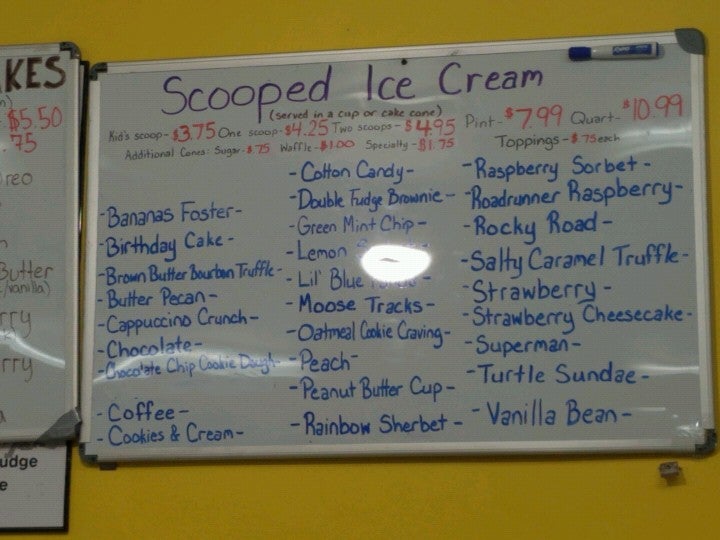 AKES
$5.50
.75
oreo
Butter
/vanilla)
rry
rry
udge
e
Scooped Ice Cream
(served in a cup or cake cone)
Kid's scoop - $3.75 One scoop - $4.25 Two scoops - $4.95
Pint - $7.99 Quart - $10.99
Additional Cones: Sugar - $.75 Waffle - $1.00 Specialty - $1.75
Toppings - $.75 each
- Bananas Foster -
- Birthday Cake -
- Brown Butter Bourbon Truffle -
- Butter Pecan -
- Cappuccino Crunch -
- Chocolate -
- Chocolate Chip Cookie Dough -
- Coffee -
- Cookies & Cream -
- Cotton Candy -
- Double Fudge Brownie -
- Green Mint Chip -
- Lemon
- Lil' Blue
- Moose Tracks -
- Oatmeal Cookie Craving -
- Peach -
- Peanut Butter Cup -
- Rainbow Sherbet -
- Raspberry Sorbet -
- Roadrunner Raspberry -
- Rocky Road -
- Salty Caramel Truffle -
- Strawberry -
- Strawberry Cheesecake -
- Superman -
- Turtle Sundae -
- Vanilla Bean -
EXPO